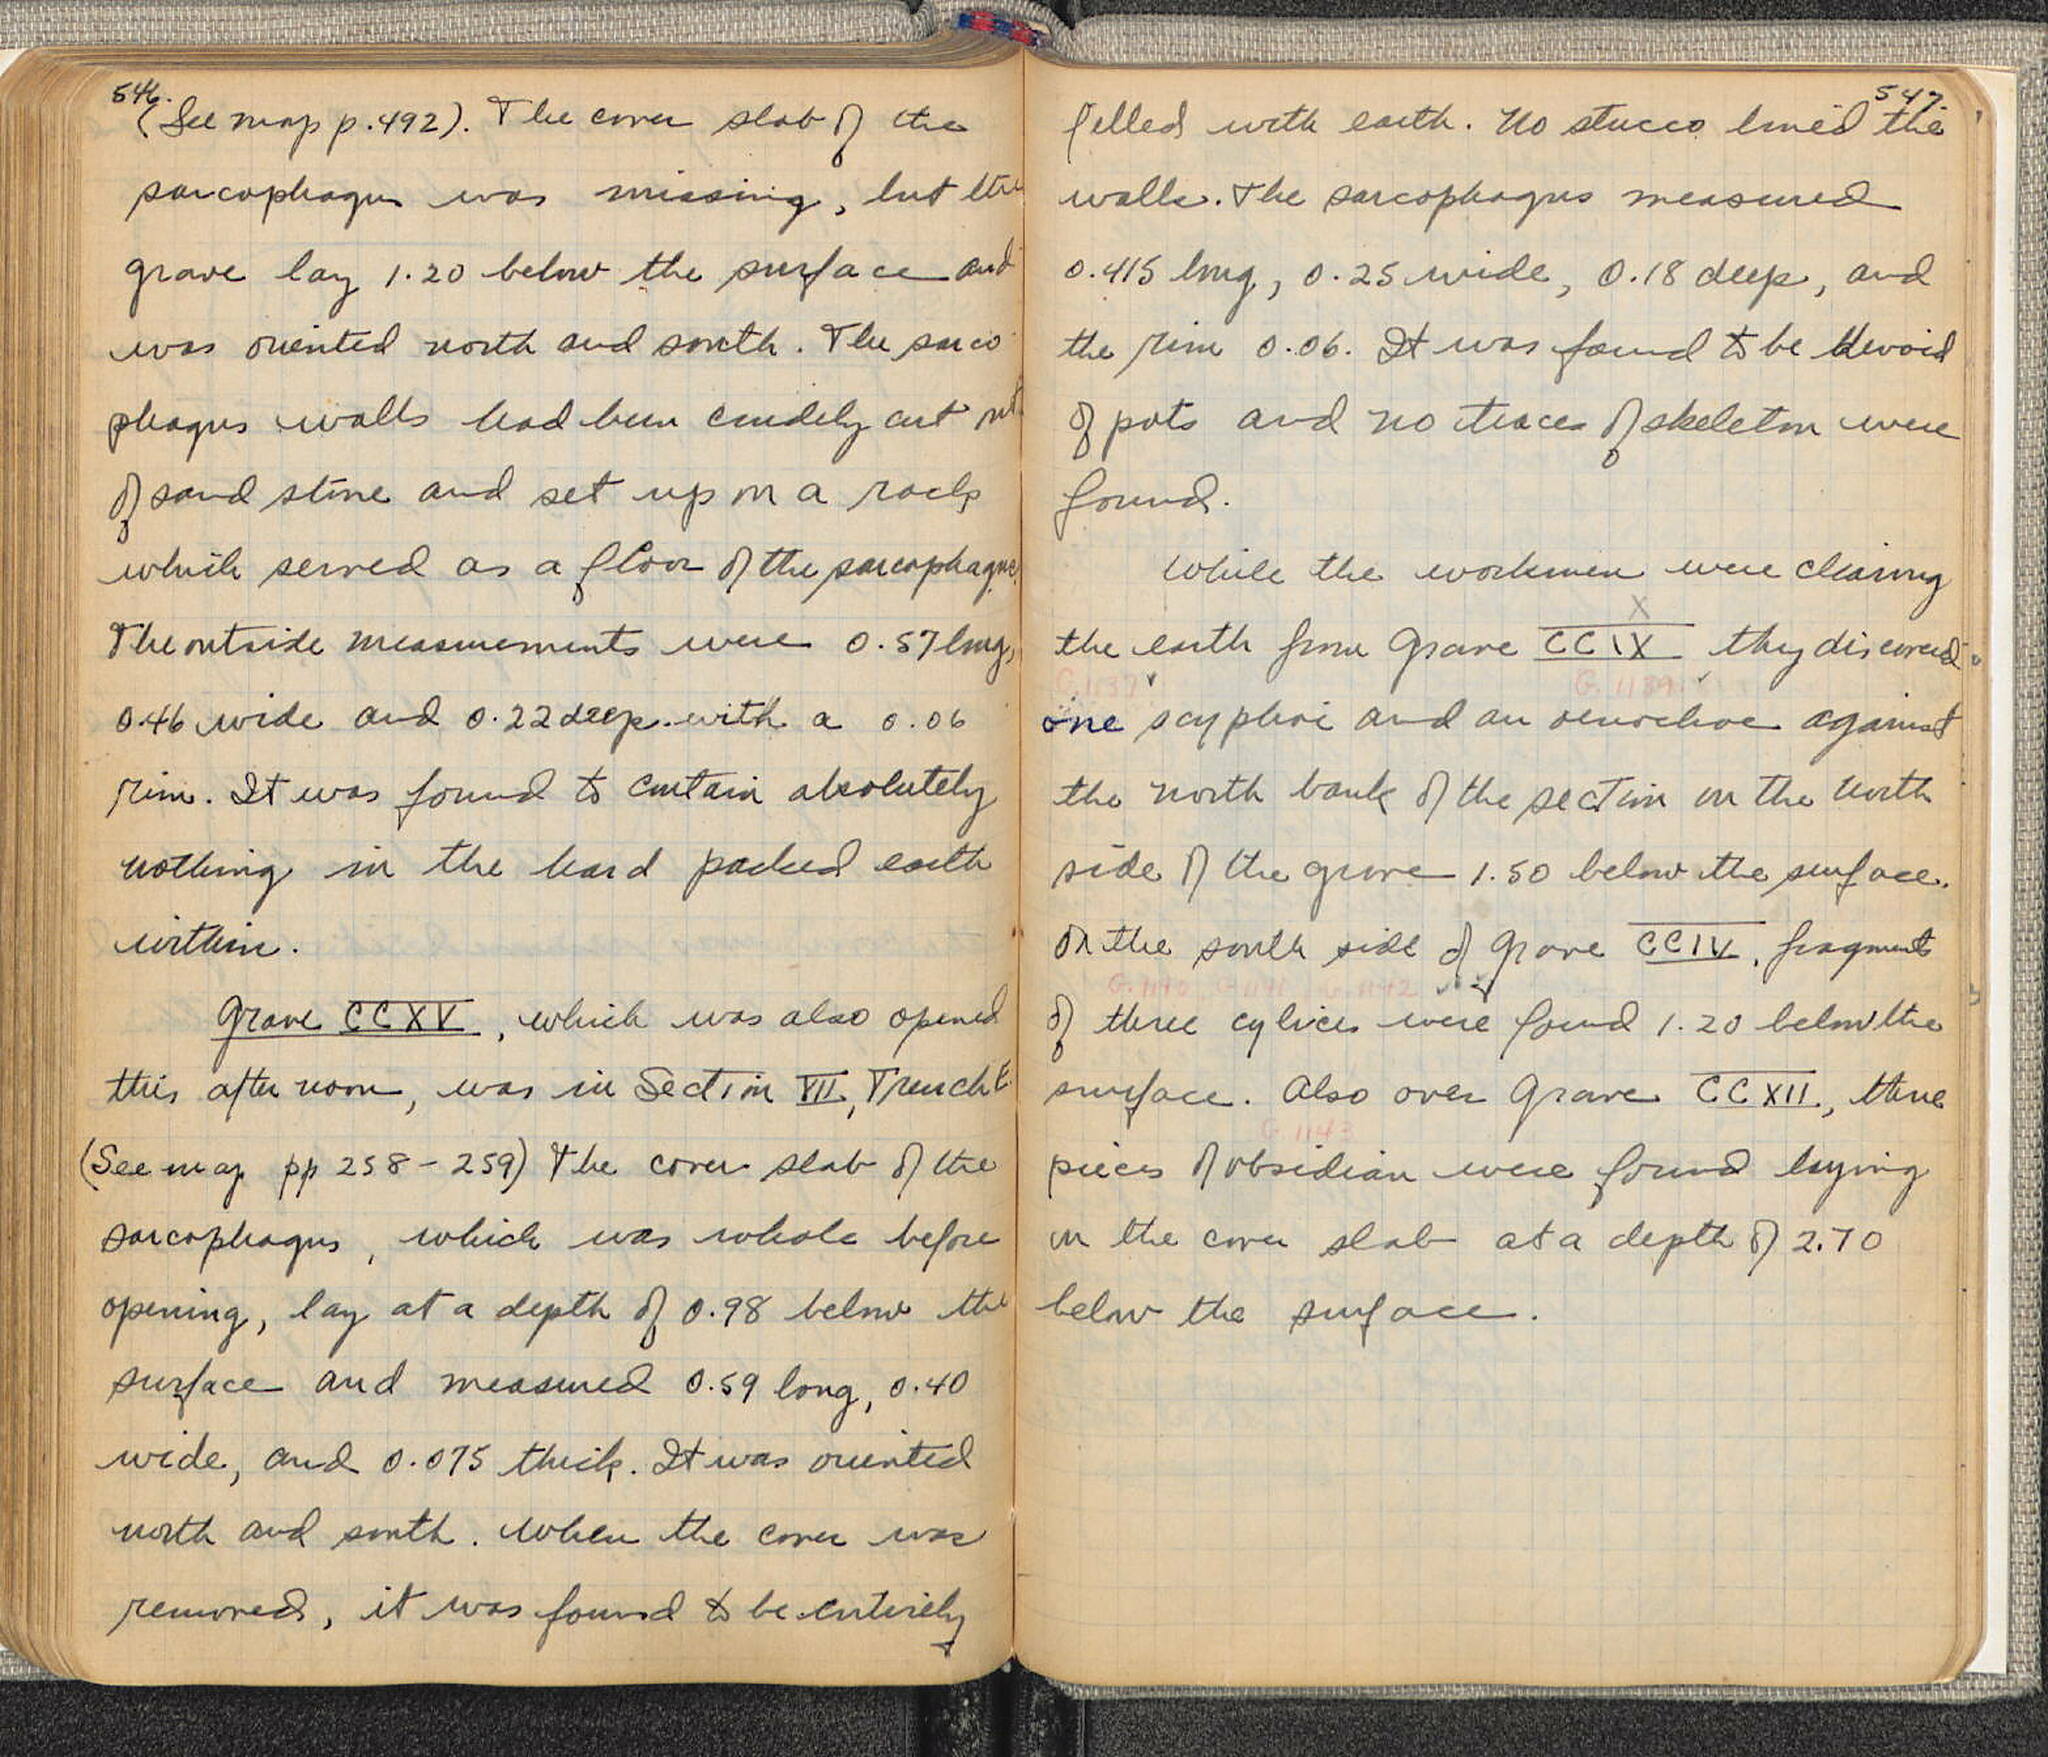 546.
(See map p. 492). The cover slab of the
sarcophagus was missing, but the
grave lay 1.20 below the surface and
was oriented north and south. The sarco
phagus walls had been crudely cut out
of sand stone and set up on a rock
which served as a floor of the sarcophagus.
The outside measurements were 0.57 long,
0.46 wide and 0.22 deep. with a 0.06
rim. It was found to contain absolutely
nothing in the hard packed earth
within.
Grave CCXV, which was also opened
this afternoon, was in Section VII, Trench E
(See map pp 258-259) The cover slab of the
sarcophagus, which was whole before
opening, lay at a depth of 0.98 below the
surface and measured 0.59 long, 0.40
wide, and 0.075 thick. It was oriented
north and south. When the cover was
removed, it was found to be entirely
547.
filled with earth. No stucco lined the
walls. The sarcophagus measured
0.415 long, 0.25 wide, 0.18 deep, and
the rim 0.06. It was found to be devoid
of pots and no traces of skeleton were
found.
While the workmen were clearing
X
the earth from Grave CCIX they discovered
G. 1137 G. 1139
one scyphoi and an oenochoe against
the north bank of the section on the north
side of the grave 1.50 below the surface.
On the south side of Grave CCIV, fragments
G. 1140 G 1141 G. 1142
of three cylices were found 1.20 below the
surface. Also over Grave CCXII, three
G. 1143
pieces of obsidian were found laying
on the cover slab at a depth of 2.70
below the surface.